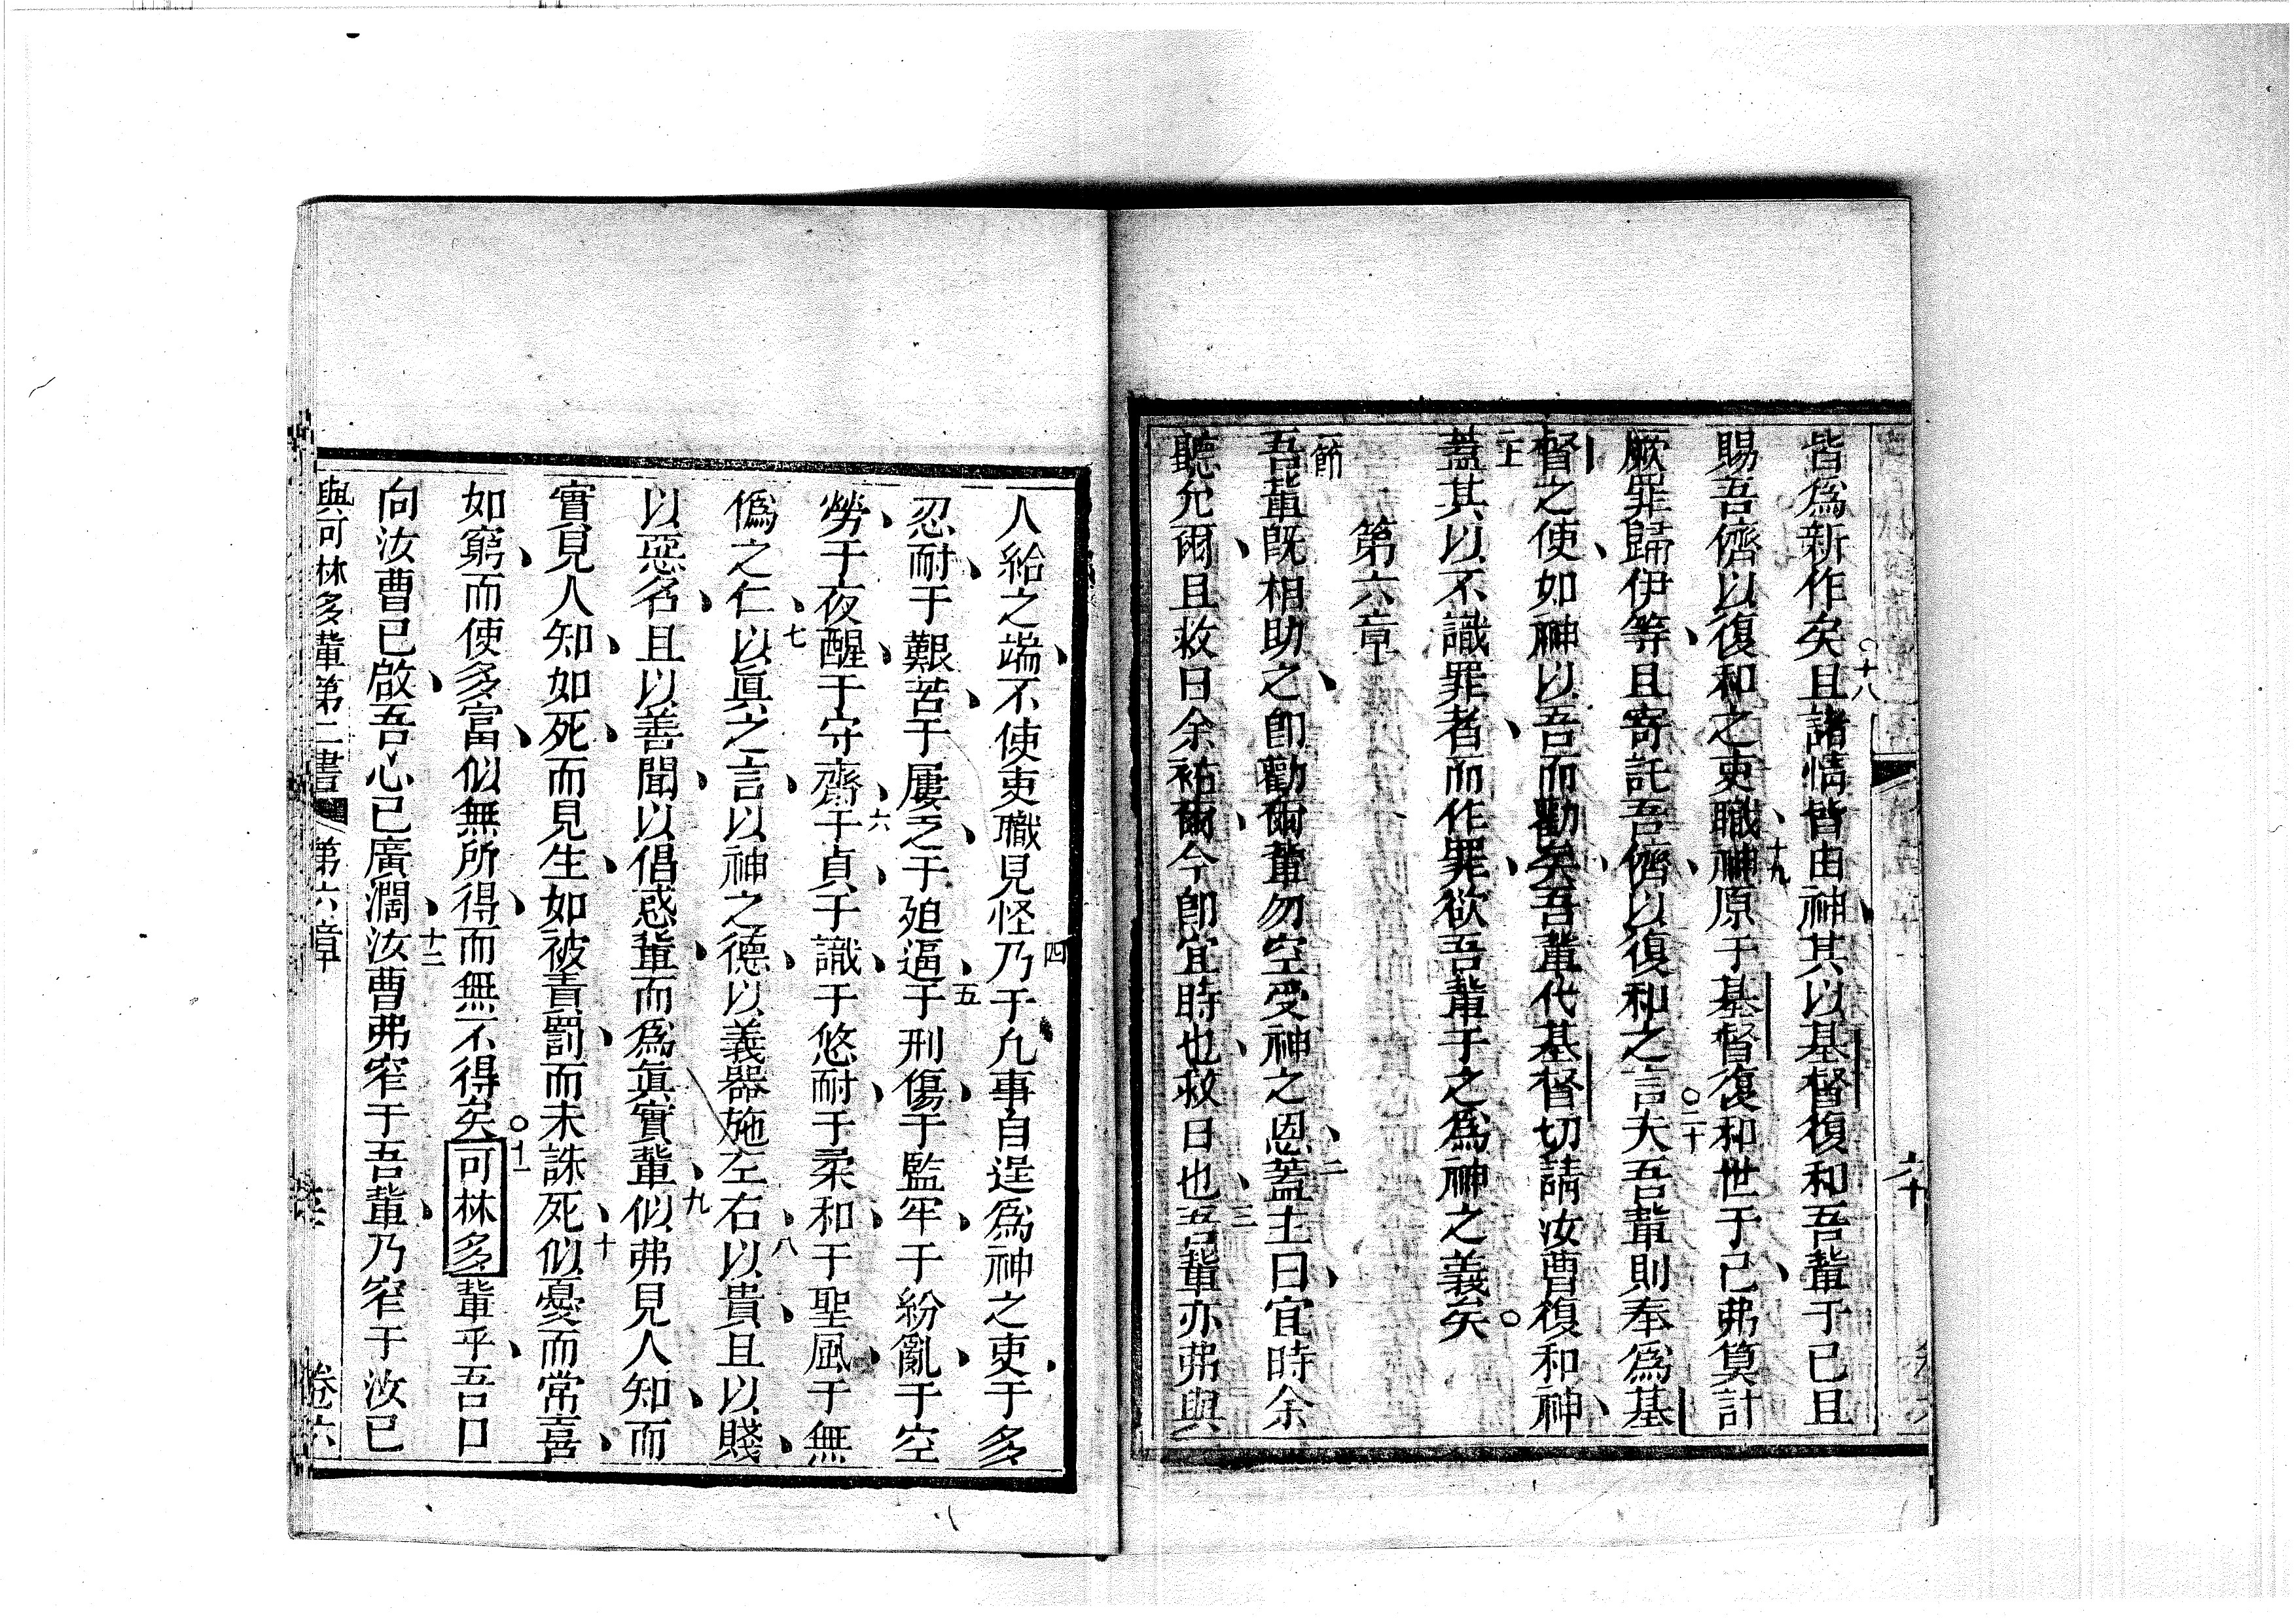 皆爲新作矣○十八且諸情皆由神、其以基督復和吾輩于己且
賜吾儕以復和之吏職、十九神原于基督復和世于己、弗算計
厥罪歸伊等、且寄託吾儕、以復和之言○二十夫吾輩則奉爲基
督之使、如神以吾而勸矣、吾輩代基督切請汝曹復和神、
二十一蓋其以不識罪者、而作罪、欲吾輩于之爲神之義矣○
第六章
一節吾輩既相助之、卽勸爾輩勿空受神之恩、二蓋主曰、宜時余
聽允爾、且救日余祐爾、今卽宜時也、救日也、三吾輩亦弗與
人給之端、不使吏職見怪四乃于凡事自逞爲神之吏、于多
忍耐、于艱苦、于屢乏、于廹逼、五于刑傷、于監牢、于紛亂、于空
勞、于夜醒、于守齋、六于貞、于識、于悠耐、于柔和、于聖風、于無
僞之仁、七以眞之言、以神之德、以義器施左右、八以貴、且以賤、
以惡名、且以善聞、以倡惑輩、而爲眞實輩、九似弗見人知、而
實見人知、如死、而見生、如被責罰、而未誅死、十似憂而常喜、
如窮、而使多富、似無所得、而無不得矣○十一可林多輩乎、吾口
向汝曹已啟、吾心已廣濶、十二汝曹弗窄于吾輩、乃窄于汝已
與可林多輩第二書 第六章 卷六